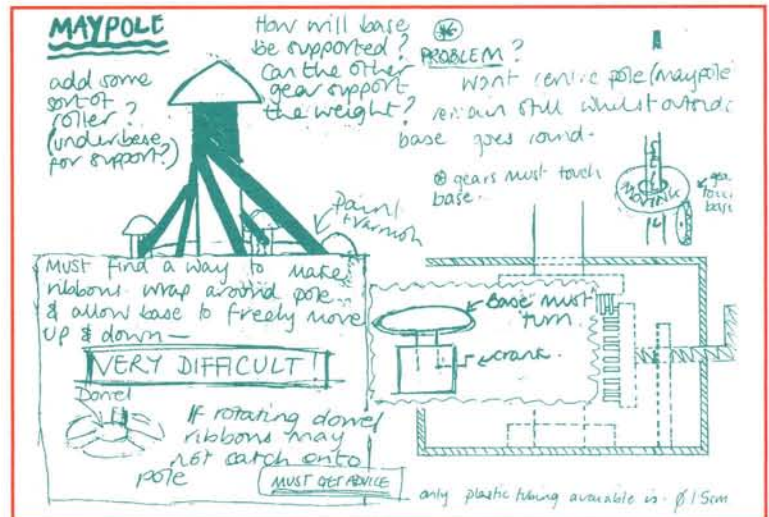 MAYPOLE
add some
sort of
roller?
(underbase
for support?)
How will base
be supported?
Can the other
gear support
the weight?
PROBLEM?
Want centre pole (maypole
remain still whilst outside
base goes round.
gears must touch
base.
MOVING
touc
base
Paint
& varnish
Must find a way to make
ribbons wrap around pole...
& allow base to freely move
up & down —
VERY DIFFICULT!
Dowel
If rotating dowel
ribbons may
not catch onto
pole
MUST GET ADVICE
Base must
turn.
crank.
only plastic tubing available is Ø 15cm